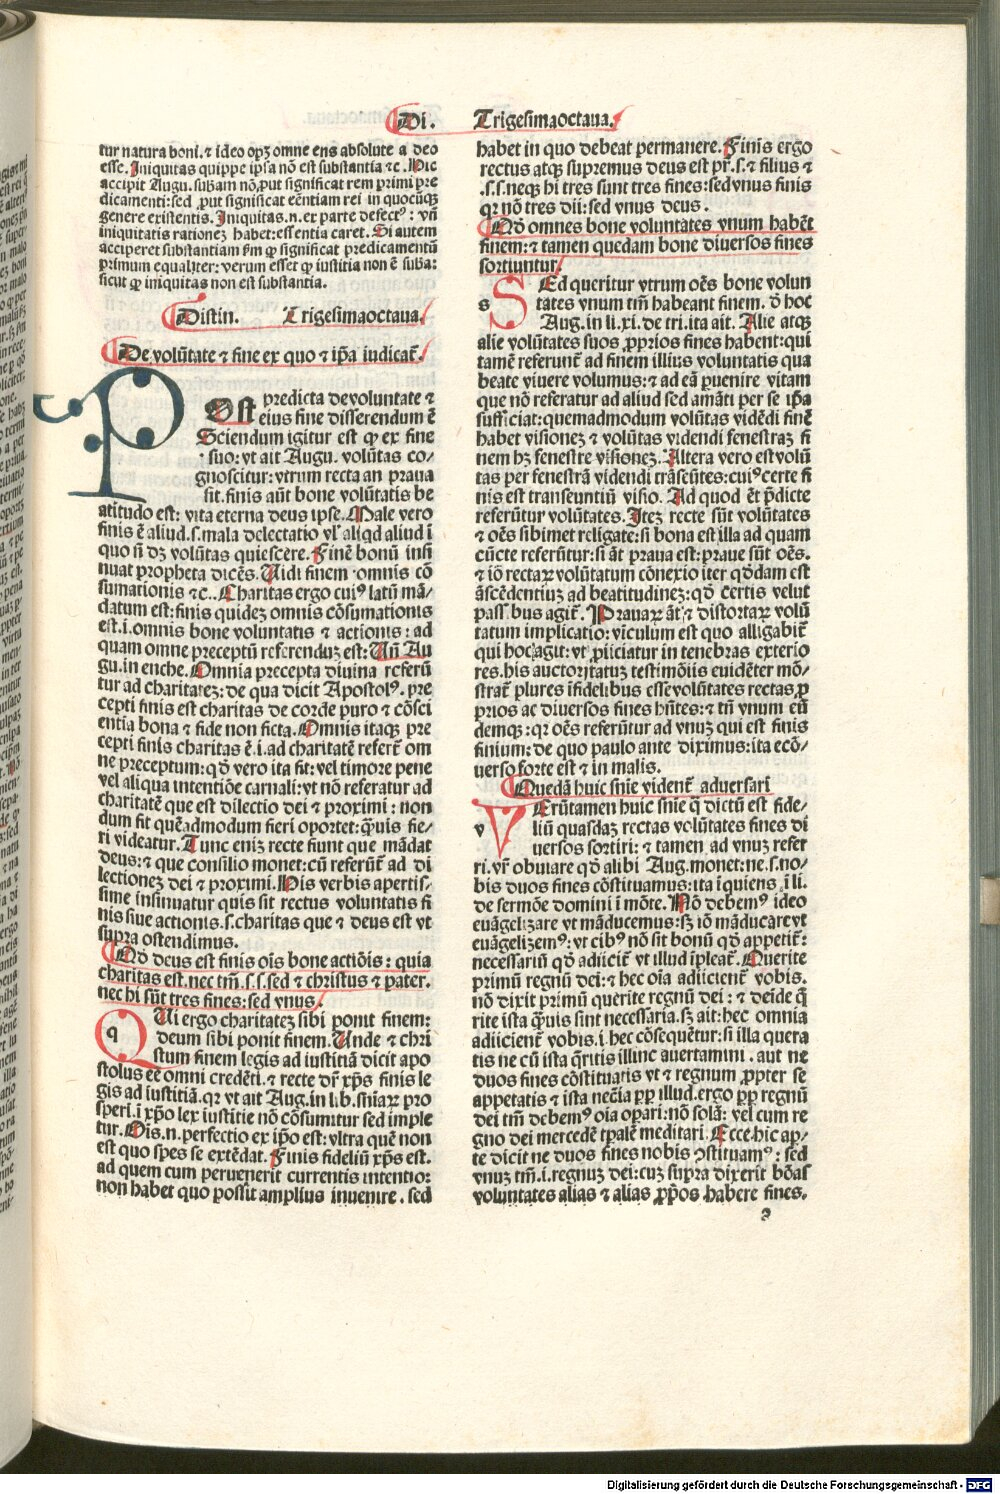 Di. Trigesimaoctaua.
tur natura boni. ⁊ ideo opꝫ omne ens absolute a deo
esse. Iniquitas quippe ipsa nō est substantia ⁊c. Hic
accipit Augu. subām nō ꝓut significat rem primi pre
dicamenti: sed ꝓut significat eēntiam rei in quocūqꝫ
genere existentis. Iniquitas.n. ex parte defectꝰ: vn̄
iniquitatis rationeꝫ habet: essentia caret. Si autem
acciperet substantiam ẜm ꝙ significat predicamentū
primum equaliter: verum esset ꝙ iustitia non ē suba:
sicut ꝙ iniquitas non est substantia.
Distin. Trigesimaoctaua.
De volūtate ⁊ fine ex quo ⁊ ip̄a iudicat̄.
POst predicta de voluntate ⁊
eius fine disserendum ē
Sciendum igitur est ꝙ ex fine
suo: vt ait Augu. volūtas co/
gnoscitur: vtrum recta an praua
sit. finis aūt bone volūtatis be
atitudo est: vita eterna deus ipse. Male vero
finis ē aliud. s. mala delectatio vl' aliqd aliud ī
quo n̄ dꝫ volūtas quiescere. Finē bonū insi
nuat propheta dicēs. Uidi finem omnis cō
sumationis ⁊c.. Charitas ergo cuiꝰ latū mā/
datum est: finis quideꝫ omnis cōsumationis
est. i. omnis bone voluntatis ⁊ actionis: ad
quam omne preceptū referenduꝫ est: Un̄ Au
gu. in enche. Omnia precepta diuina referū
tur ad charitateꝫ: de qua dicit Apostolꝰ. pre
cepti finis est charitas de corde puro ⁊ cōsci
entia bona ⁊ fide non ficta. Omnis itaqꝫ pre
cepti finis charitas ē. i. ad charitatē refert̄ om
ne preceptum: qd̄ vero ita fit: vel timore pene
vel aliqua intentiōe carnali: vt nō referatur ad
charitatē que est dilectio dei ⁊ proximi: non
dum fit quēadmodum fieri oportet: ꝙuis fie/
ri videatur. Tunc eniꝫ recte fiunt que mādat
deus: ⁊ que consilio monet: cū referūt̄ ad di
lectioneꝫ dei ⁊ proximi. His verbis apertis/
sime insinuatur quis sit rectus voluntatis fi
nis siue actionis. s. charitas que ⁊ deus est vt
supra ostendimus.
Qd̄ deus est finis oīs bone actiōis: quia
charitas est. nec tm̄. s. s. sed ⁊ christus ⁊ pater.
nec hi sūt tres fines: sed vnus.
QUi ergo charitateꝫ sibi ponit finem:
q
deum sibi ponit finem. Unde ⁊ chri
stum finem legis ad iustitiā dicit apo
stolus eē omni credēti. ⁊ recte dr̄ xp̄s finis le
gis ad iustitiā. qꝛ vt ait Aug. in lib. sn̄iaꝝ pro
speri. ī xp̄o lex iustitie nō cōsumitur sed imple
tur. Ois. n. perfectio ex ip̄o est: vltra quē non
est quo spes se extēdat. Finis fideliū xp̄s est.
ad quem cum peruenerit currentis intentio:
non habet quo possit amplius inuenire. sed
habet in quo debeat permanere. Finis ergo
rectus atqꝫ supremus deus est pr̄. s. ⁊ filius ⁊
.s.s. neqꝫ hi tres sunt tres fines: sed vnus finis
qꝛ nō tres dii: sed vnus deus.
Qd̄ omnes bone voluntates vnum habēt
finem: ⁊ tamen quedam bone diuersos fines
sortiuntur
SEd queritur vtrum oēs bone volun
s
tates vnum tm̄ habeant finem. d̄ hoc
Aug. in li. xi. de tri. ita ait. Alie atqꝫ
alie volūtates suos ꝓprios fines habent: qui
tamē referunt̄ ad finem illius voluntatis qua
beate viuere volumus: ⁊ ad eā ꝑuenire vitam
que nō referatur ad aliud sed amāti per se ip̄a
sufficiat: quemadmodum volūtas vidēdi finē
habet visioneꝫ ⁊ volūtas videndi fenestraꝫ fi
nem hꝫ fenestre visioneꝫ. Altera vero est volū
tas per fenestrā videndi trāseūtes: cuiꝰ certe fi
nis est transeuntiū visio. Ad quod ēt p̄dicte
referūtur volūtates. Iteꝫ recte sūt volūtates
⁊ oēs sibimet religate: si bona est illa ad quam
cūcte referūtur: si āt praua est: praue sūt oēs.
⁊ iō rectaꝝ voluntatum cōnexio iter qd̄dam est
āscēdentiuꝫ ad beatitudineꝫ: qd̄ certis velut
passibus agit̄. Prauaꝝ āt ⁊ distortaꝝ volū
tatum implicatio: vinculum est quo alligabit̄
qui hoc agit: vt ꝓiiciatur in tenebras exterio
res. his auctoritatuꝫ testimōiis euidēter mō/
strat̄ plures ī fidelibus esse volūtates rectas ꝓ
prios ac diuersos fines hn̄tes: ⁊ tn̄ vnum eū
demqꝫ: qꝛ oēs referūtur ad vnuꝫ qui est finis
finium: de quo paulo ante diximus: ita ecō/
uerso forte est ⁊ in malis.
Quedā huic sn̄ie vident̄ aduersari
VErūtamen huic sn̄ie q̄ dictū est fide/
v
liū quasdaꝫ rectas volūtates fines di
uersos sortiri: ⁊ tamen ad vnuꝫ refer
ri. vr̄ obuiare qd̄ alibi Aug. monet: ne. s. no/
bis duos fines cōstituamus: ita īquiens ī li.
de sermōe domini ī mōte. Nō debemꝰ ideo
euāgelizare vt māducemus: sꝫ iō māducare vt
euāgelizemꝰ: vt cibꝰ nō sit bonū qd̄ appetit̄:
necessariū qd̄ adiicit̄ vt illud īpleat̄. Querite
primū regnū dei: ⁊ hec oīa adiicient̄ vobis.
nō dixit primū querite regnū dei: ⁊ deīde q̄
rite ista ꝙuis sint necessaria. sꝫ ait: hec omnia
adiicient̄ vobis. i. hec cōsequētur: si illa quera
tis ne cū ista q̄ritis illinc auertamini. aut ne
duos fines cōstituatis vt ⁊ regnum ꝓpter se
appetatis ⁊ ista nec̄ia ꝓp illud. ergo ꝓp regnū
dei tm̄ debemꝰ oīa opari: nō solā: vel cum re
gno dei mercedē tꝑalē meditari. Ecce. hic ap/
te dicit ne duos fines nobis ꝯstituamꝰ: sed
vnuꝫ tm̄. i. regnuꝫ dei: cuꝫ supra dixerit bōas
voluntates alias ⁊ alias ꝓp̄os habere fines.
3
Digitalisierung gefördert durch die Deutsche Forschungsgemeinschaft - DFG